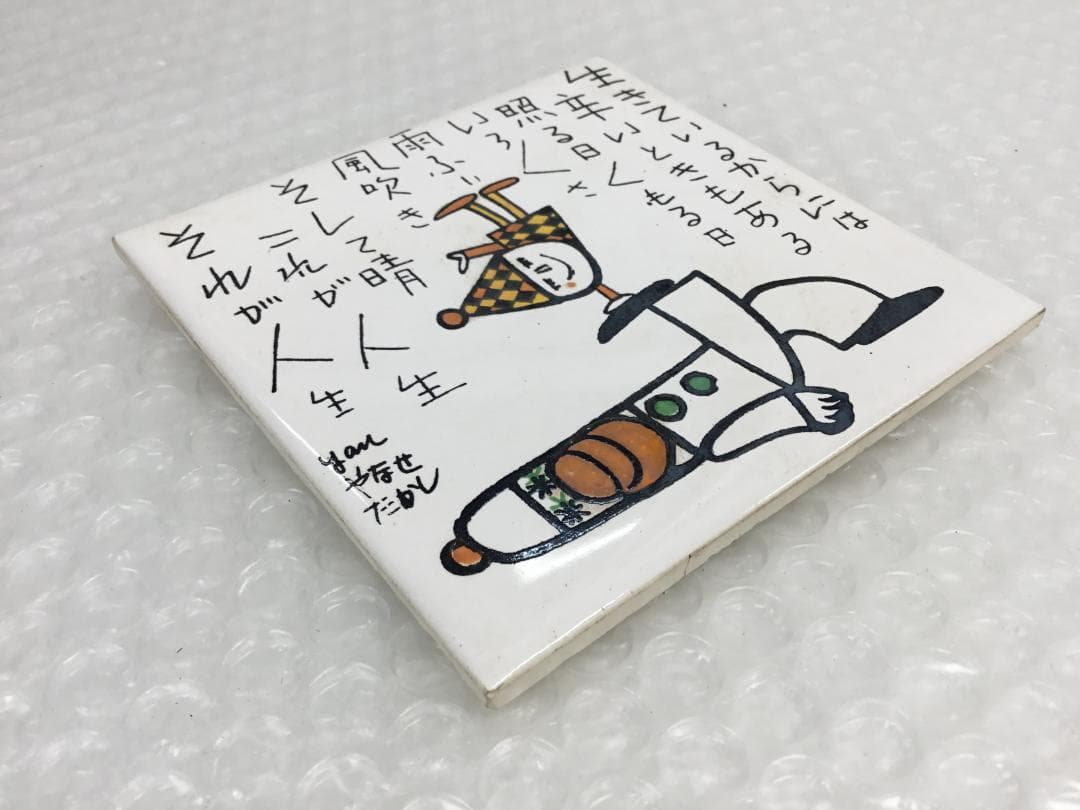 生きているからには
辛いときもある
照る日くもる日
いろ〳〵さ
雨ふり
風吹き
そして晴
これが人生
それが人生
yan
やなせ
たかし